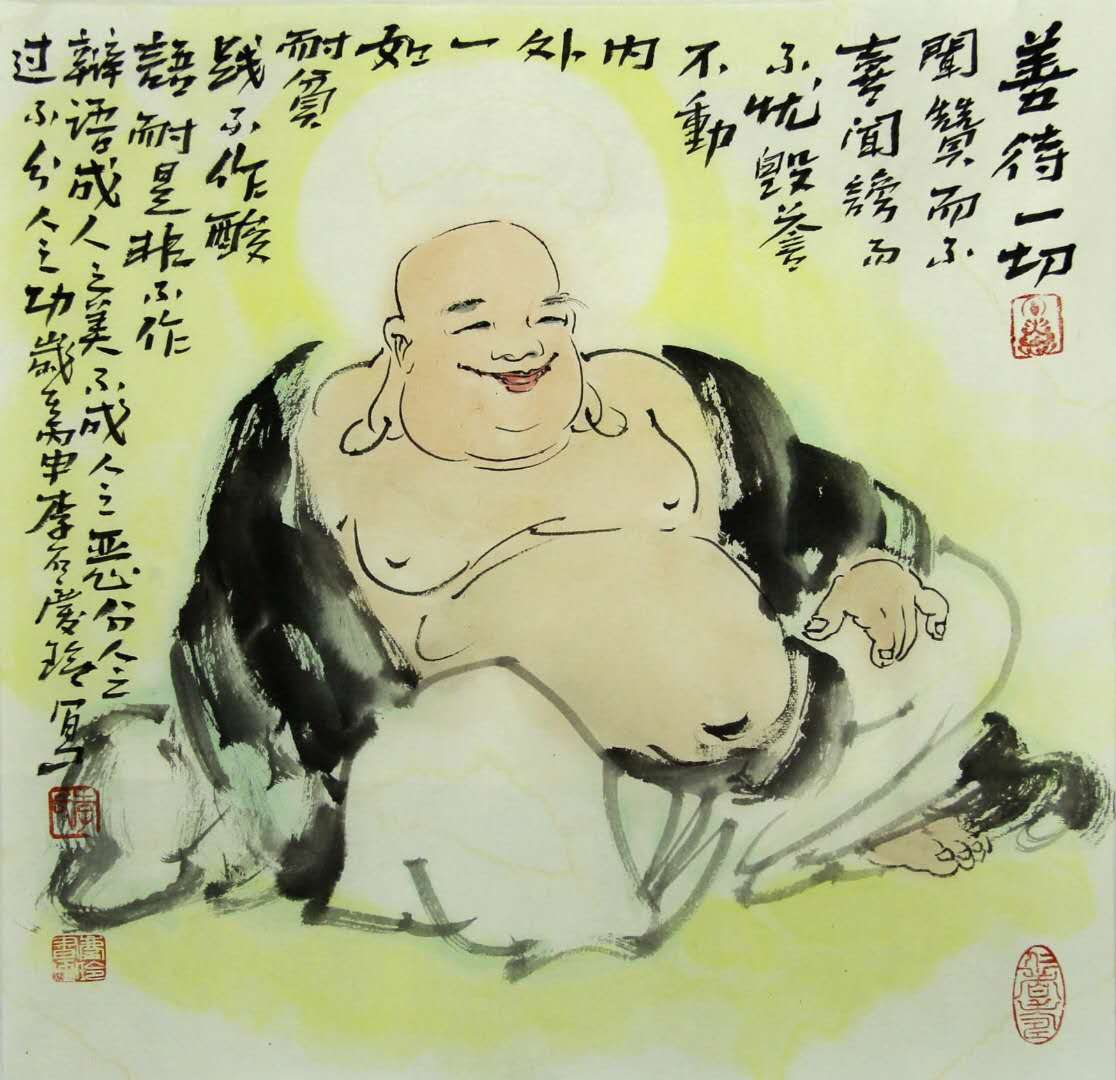 善待一切
聞贊而不
喜闻謗而
不忧毀誉
不動
内
外
一
如
耐貧
践不作酸
語耐是非不作
辯语成人之美不成人之恶分人之
过不分人之功歲在丙申李慶玲写